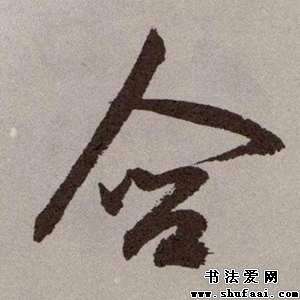 含
书法爱网
www.shufaai.com